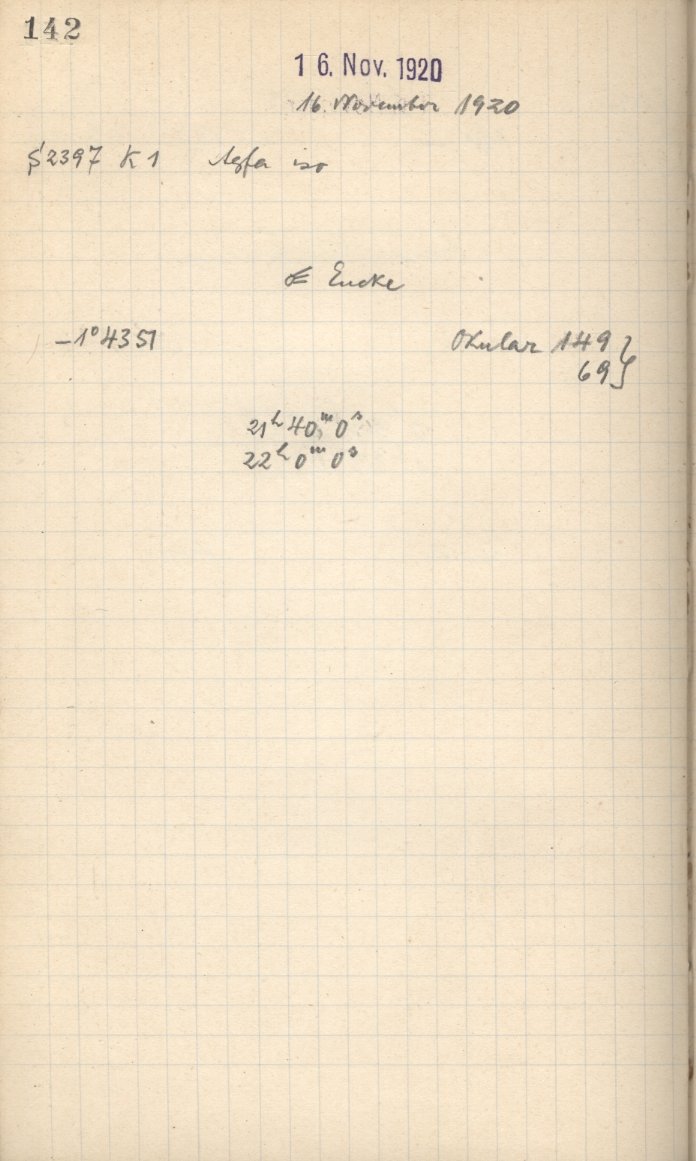 142
16. Nov. 1920
16. November 1920
2397 K1 Agfa iso
Encke
-1°4351 Okular 149 }
69 }
21h 40m 0s
22h 0m 0s